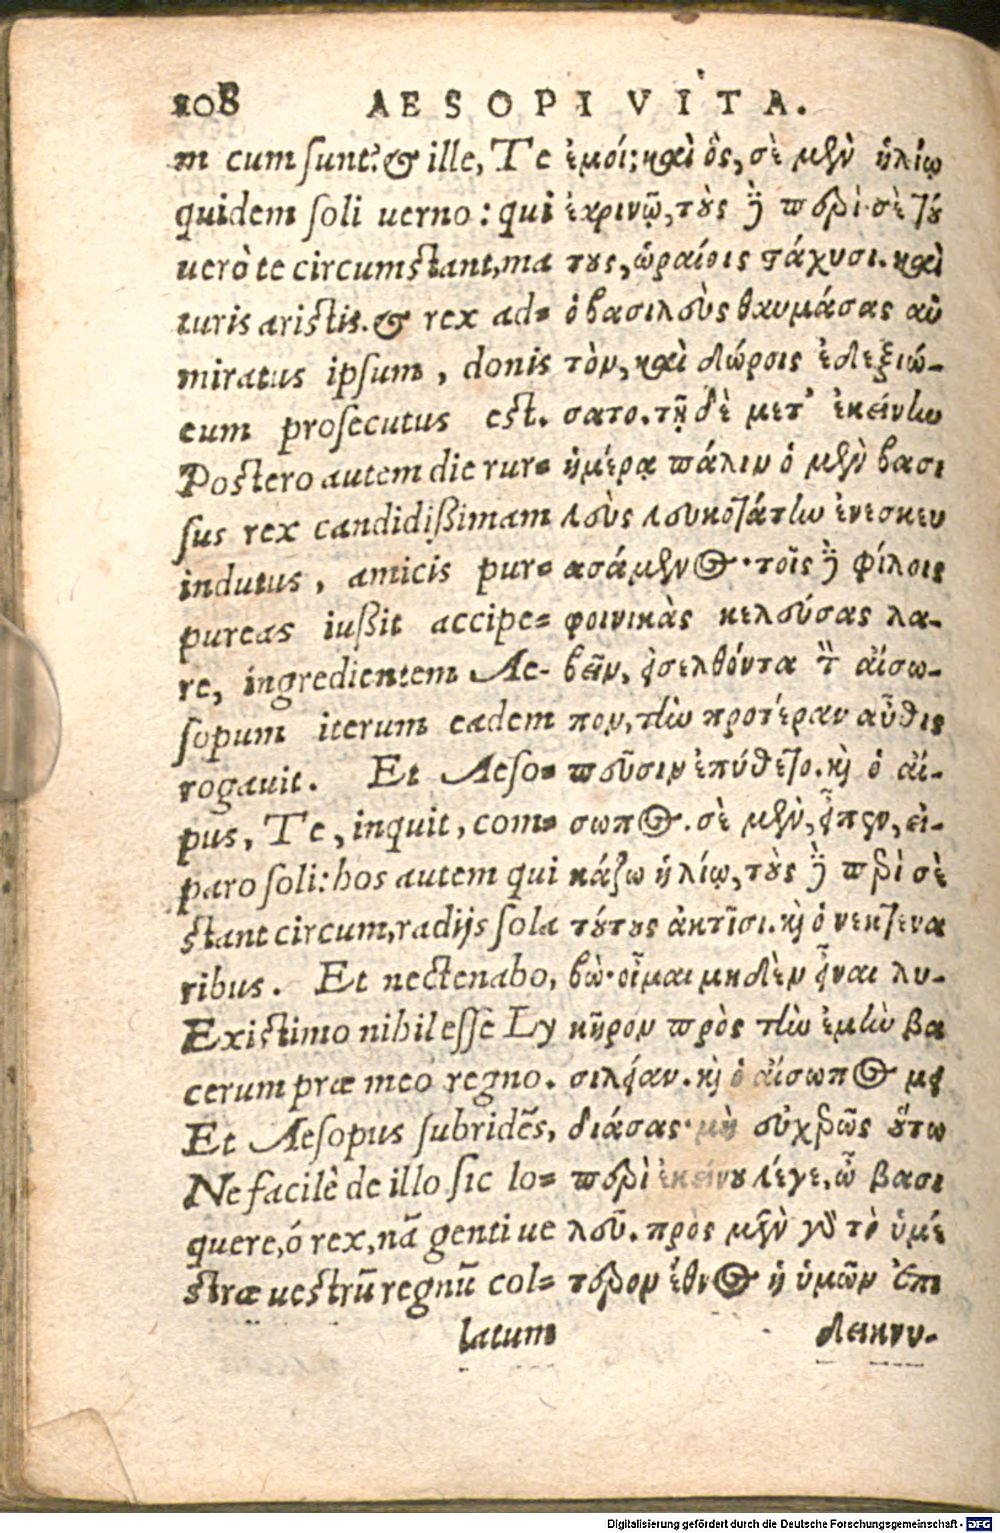 108 AESOPI VITA.
m cum sunt? & ille, Te
quidem soli uerno: qui
uerò te circumstant, ma
turis aristis. & rex ad=
miratus ipsum, donis
eum prosecutus est.
Postero autem die rur=
sus rex candidißimam
indutus, amicis pur=
pureas iußit accipe=
re, ingredientem Ae-
sopum iterum eadem
rogauit. Et Aeso=
pus, Te, inquit, com=
paro soli: hos autem qui
stant circum, radijs sola
ribus. Et nectenabo,
Existimo nihil esse Ly
cerum præ meo regno.
Et Aesopus subridẽs,
Ne facilè de illo sic lo=
quere, ó rex, nã genti ue
stræ uestrũ regnũ col=
latum
ἐμοί; καὶ ὃς, σὲ μὲν ἡλίῳ
ἐαρινῷ, τοὺς δὲ περὶ σὲ τού
τους, ὡραίοις στάχυσι. καὶ
ὁ βασιλεὺς θαυμάσας αὐ
τὸν, καὶ δώροις ἐδεξιώ-
σατο. τῇ δὲ μετ' ἐκείνην
ἡμέρᾳ πάλιν ὁ μὲν βασι
λεὺς λευκοτάτην ἐνεσκευ
ασάμενος· τοῖς δὲ φίλοις
φοινικὰς κελεύσας λα-
βεῖν, εἰσελθόντα τὸν αἴσω-
πον, τὴν προτέραν αὖθις
πεῦσιν ἐπύθετο. καὶ ὁ αἴ-
σωπος. σὲ μὲν, εἶπεν, εἰ-
κάζω ἡλίῳ, τοὺς δὲ περὶ σὲ
τούτους ἀκτῖσι. καὶ ὁ νεκτενα
βὼ· οἶμαι μηδὲν εἶναι λυ-
κῆρον πρὸς τὴν ἐμὴν βα
σιλείαν. καὶ ὁ αἴσωπος μει
διάσας· μὴ εὐχερῶς οὕτω
περὶ ἐκείνου λέγε, ὦ βασι
λεῦ. πρὸς μὲν γὰρ τὸ ὑμέ
τερον ἔθνος ἡ ὑμῶν ἐπι
δεικνυ-
Digitalisierung gefördert durch die Deutsche Forschungsgemeinschaft - DFG